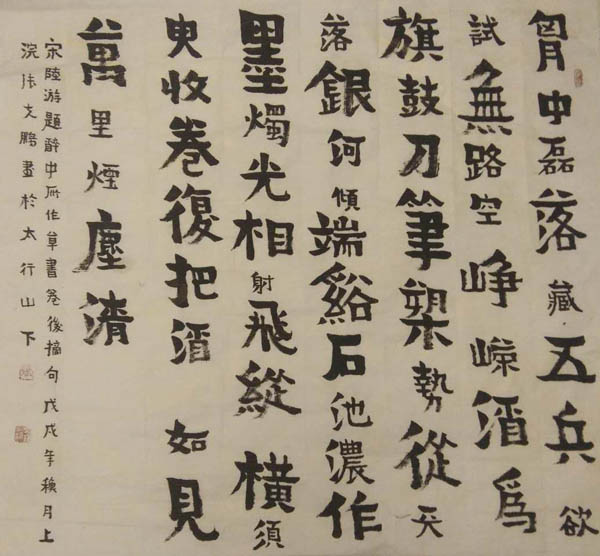 胷中磊落藏五兵欲
試無路空崢嶸酒爲
旗鼓刀筆槊勢從天
落銀河傾端谿石池濃作
墨燭光相射飛縱橫須
臾收卷復把酒如見
萬里煙塵清
宋陸游題醉中所作草書卷後摘句戊戌年月上
浣張文鵬書於太行山下